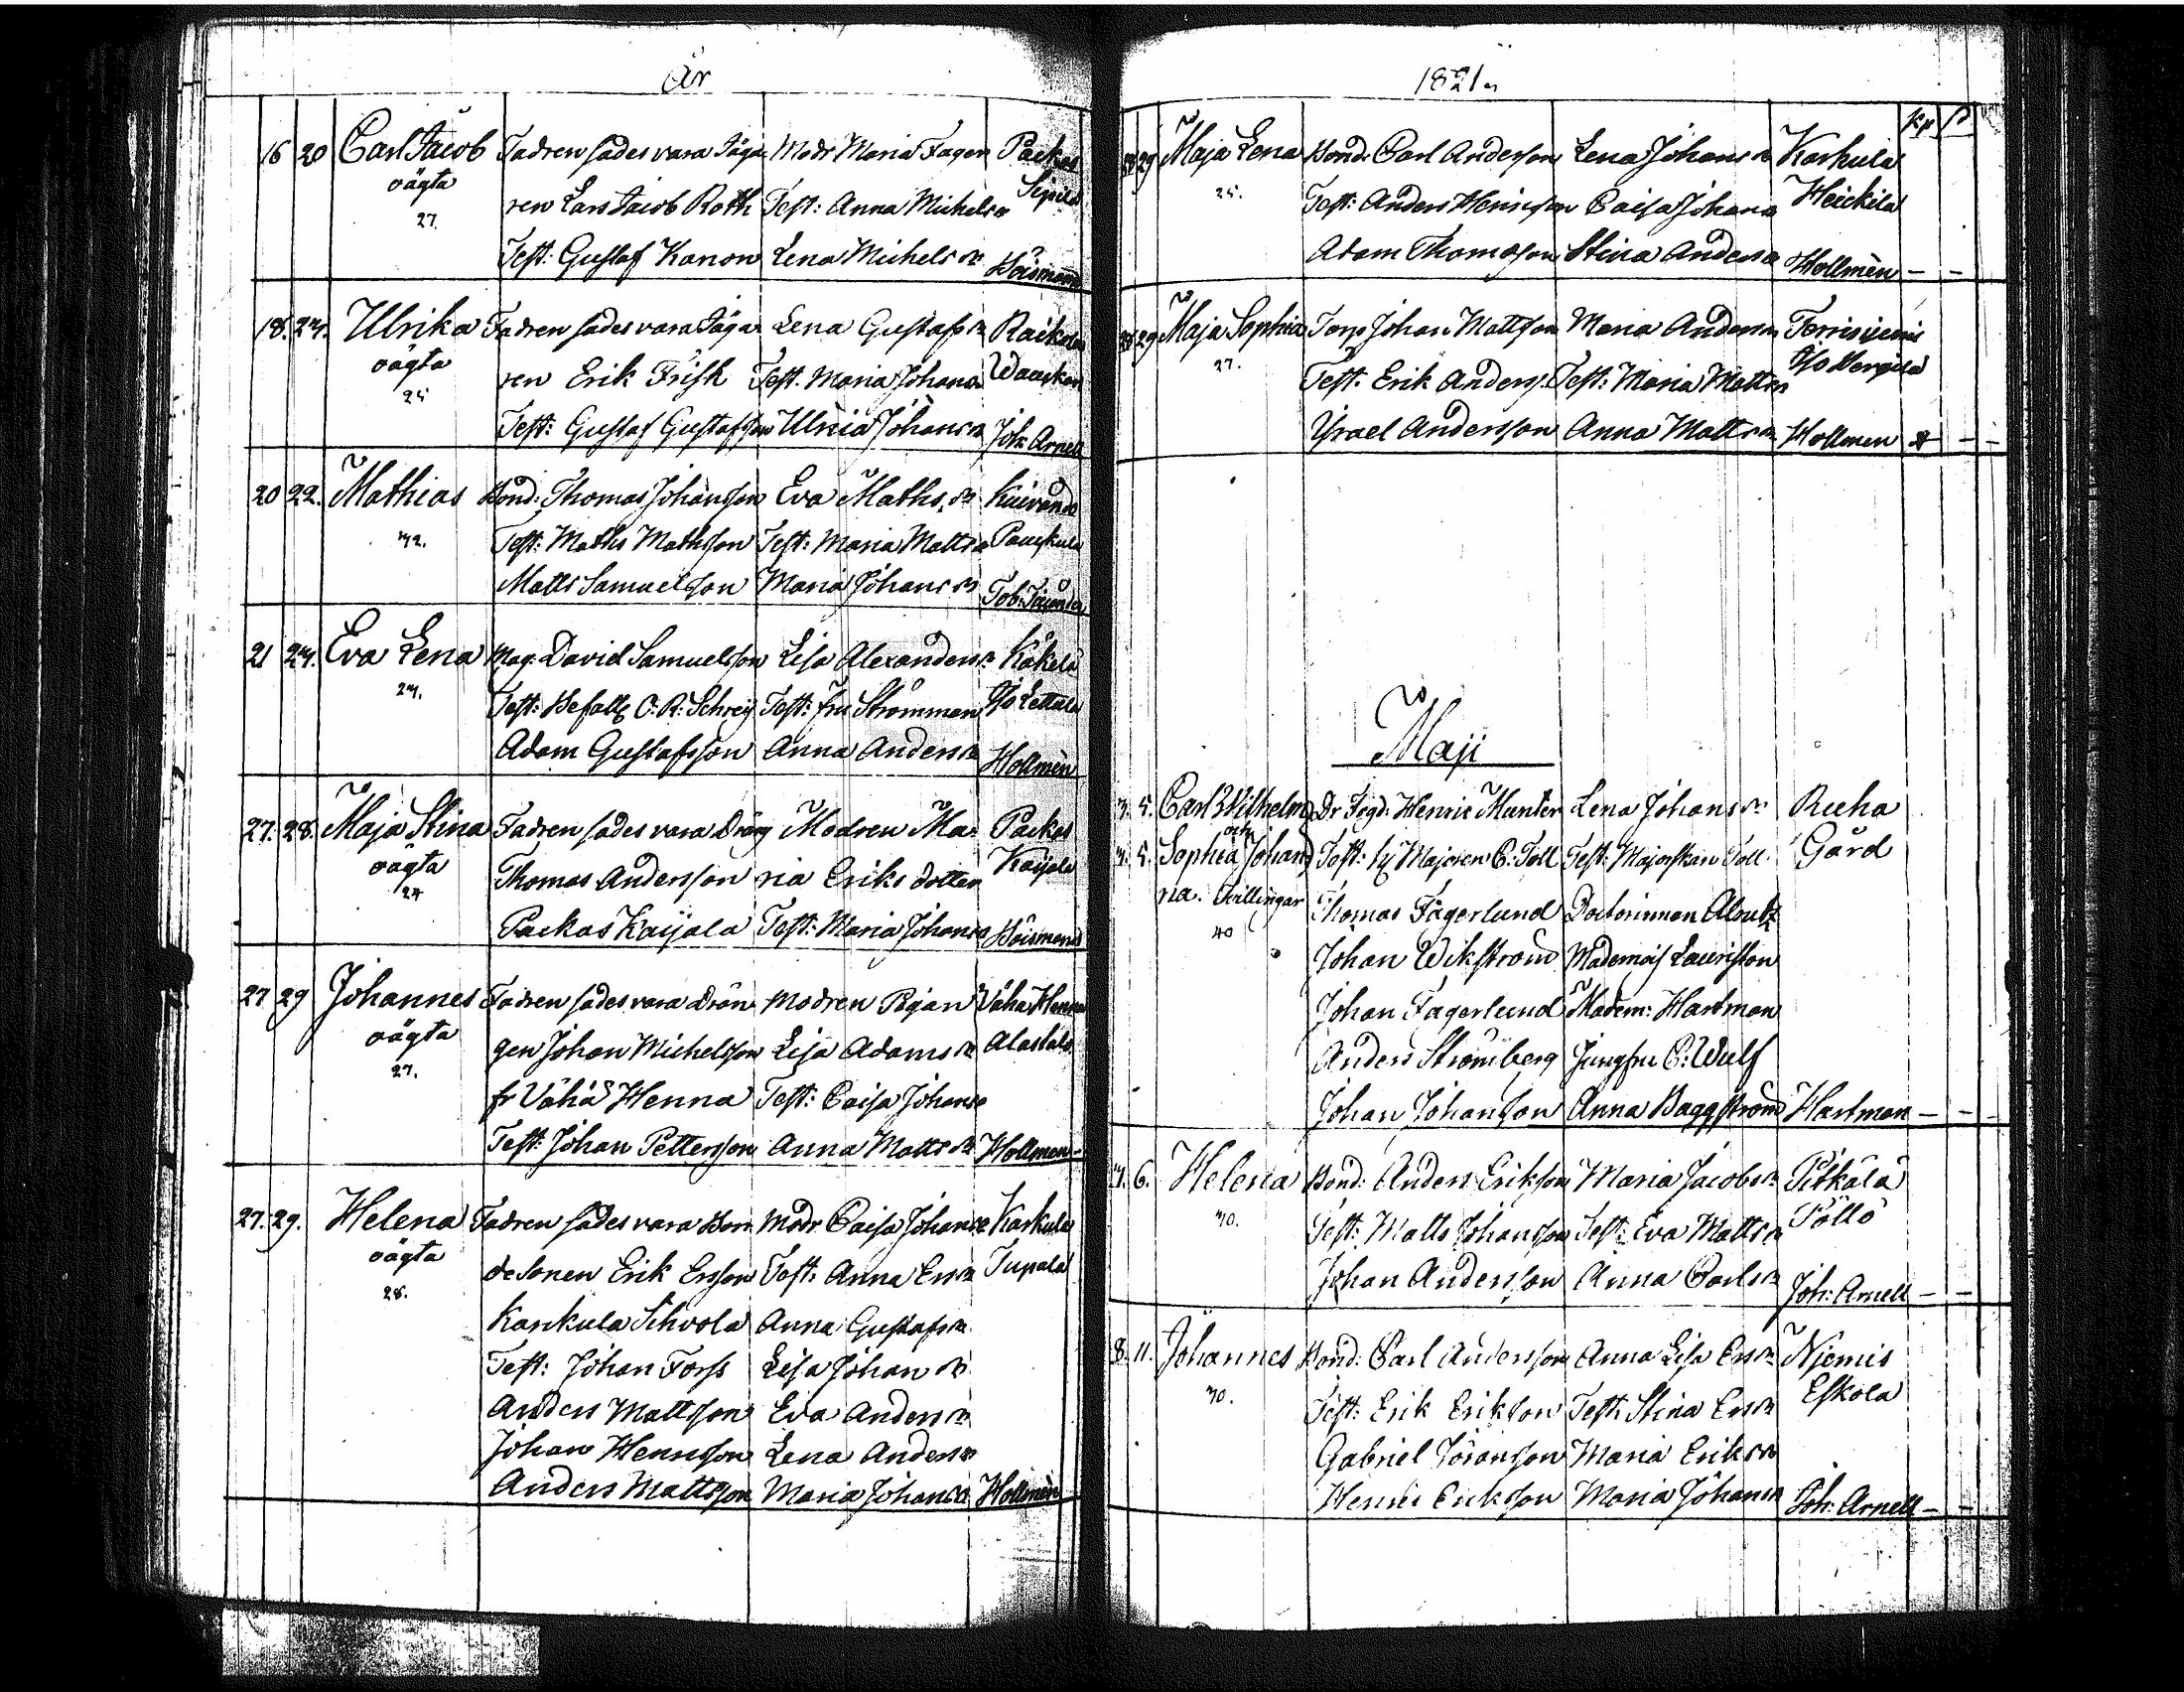 År
16 20 Carl Jacob Fadren sades vara Jäga Modr Maria Fager Packas
oägta ren Lars Jacob Roth Test: Anna Michels dr Sipilä
27. Test: Gustaf Kanon Lena Michels dr
18. 24. Ulrika Fadren sades vara Jäga Lena Gustafs dr Raikola
oägta ren Erik Frisk Test. Maria Johans dr
25 Test: Gustaf Gustafsson Ulrica Johans dr Joh: Arnell
20 22. Mathias Bond: Thomas Johansson Eva Maths. dr
42. Test: Maths Mathsson Test: Maria Matts dr
Matts Samuelsson Maria Johans dr
21 24. Eva Lena Mag: David Samuelsson Lisa Alexanders dr Kåkela
24. Test: Befallg C. R. Test: fru
Adam Gustafsson Anna Anders dr Hollmèn
27. 28. Maja Stina Fadren sades vara Dräng Modren Ma- Packas
oägta Thomas Andersson ria Eriks dotter Kaijala
24 Packas Kaijala Test: Maria Johans dr
27 29 Johannes Fadren sades vara drän- Modren Pigan Vähä Henna
oägta gen Johan Michelsson Lisa Adams dr Alastalo
27. fr Vähä Henna Test: Caisa Johans dr
Test: Johan Pettersson Anna Matts dr Hollmen
27. 29. Helena Fadren sades vara Bon Modr Caisa Johans dr Karkula
oägta desonen Erik Ersson Test: Anna Ers dr Tupala
28. Karkula Sihvola Anna Gustafs dr
Test: Johan Forss Lisa Johan dr
Anders Mattsson Eva Anders dr
Johan Henrsson Lena Anders dr
Anders Mattsson Maria Johans dr Hollmèn
1821.
29 Maja Lena Bond: Carl Andersson Lena Johans dr Karkula
25. Test: Anders Henricsson Caisa Johans dr Heickilä
Adam Thomasson Stina Anders dr Hollmèn - -
29 Maja Sophia Torp Johan Mattsson Maria Anders dr
27. Test: Erik Anders. Test: Maria Matts dr
Israel Andersson Anna Matts dr Hollmen - -
Maji
3. 5. Carl Wilhelm Dr Fogd: Henric Munter Lena Johans dr Ruha
och
3. 5. Sophia Johan Test: Majoren C: Toll Test: Majorskan Toll. Gård
na. Tvillingar Thomas Fagerlund Doctorinnan
40 Johan Wikström Mademois Lauriston
Johan Fagerlund Madem: Hartman
Anders Strömberg Jungfru C: Wulf
Johan Johansson Anna Baggström Hartman - - -
4. 6. Helena Bond: Anders Eriksson Maria Jacobs dr Pitkälä
40. Test: Matts Johansson Test: Eva Matts dr Pöllö
Johan Andersson Anna Carls dr Joh: Arnell - -
8. 11. Johannes Bond: Carl Andersson Anna Lisa Ers dr Njemis
40. Test: Erik Eriksson Test: Stina Ers dr Eskola
Gabriel Göransson Maria Eriks dr
Henric Ericksson Maria Johans dr Joh: Arnell - -